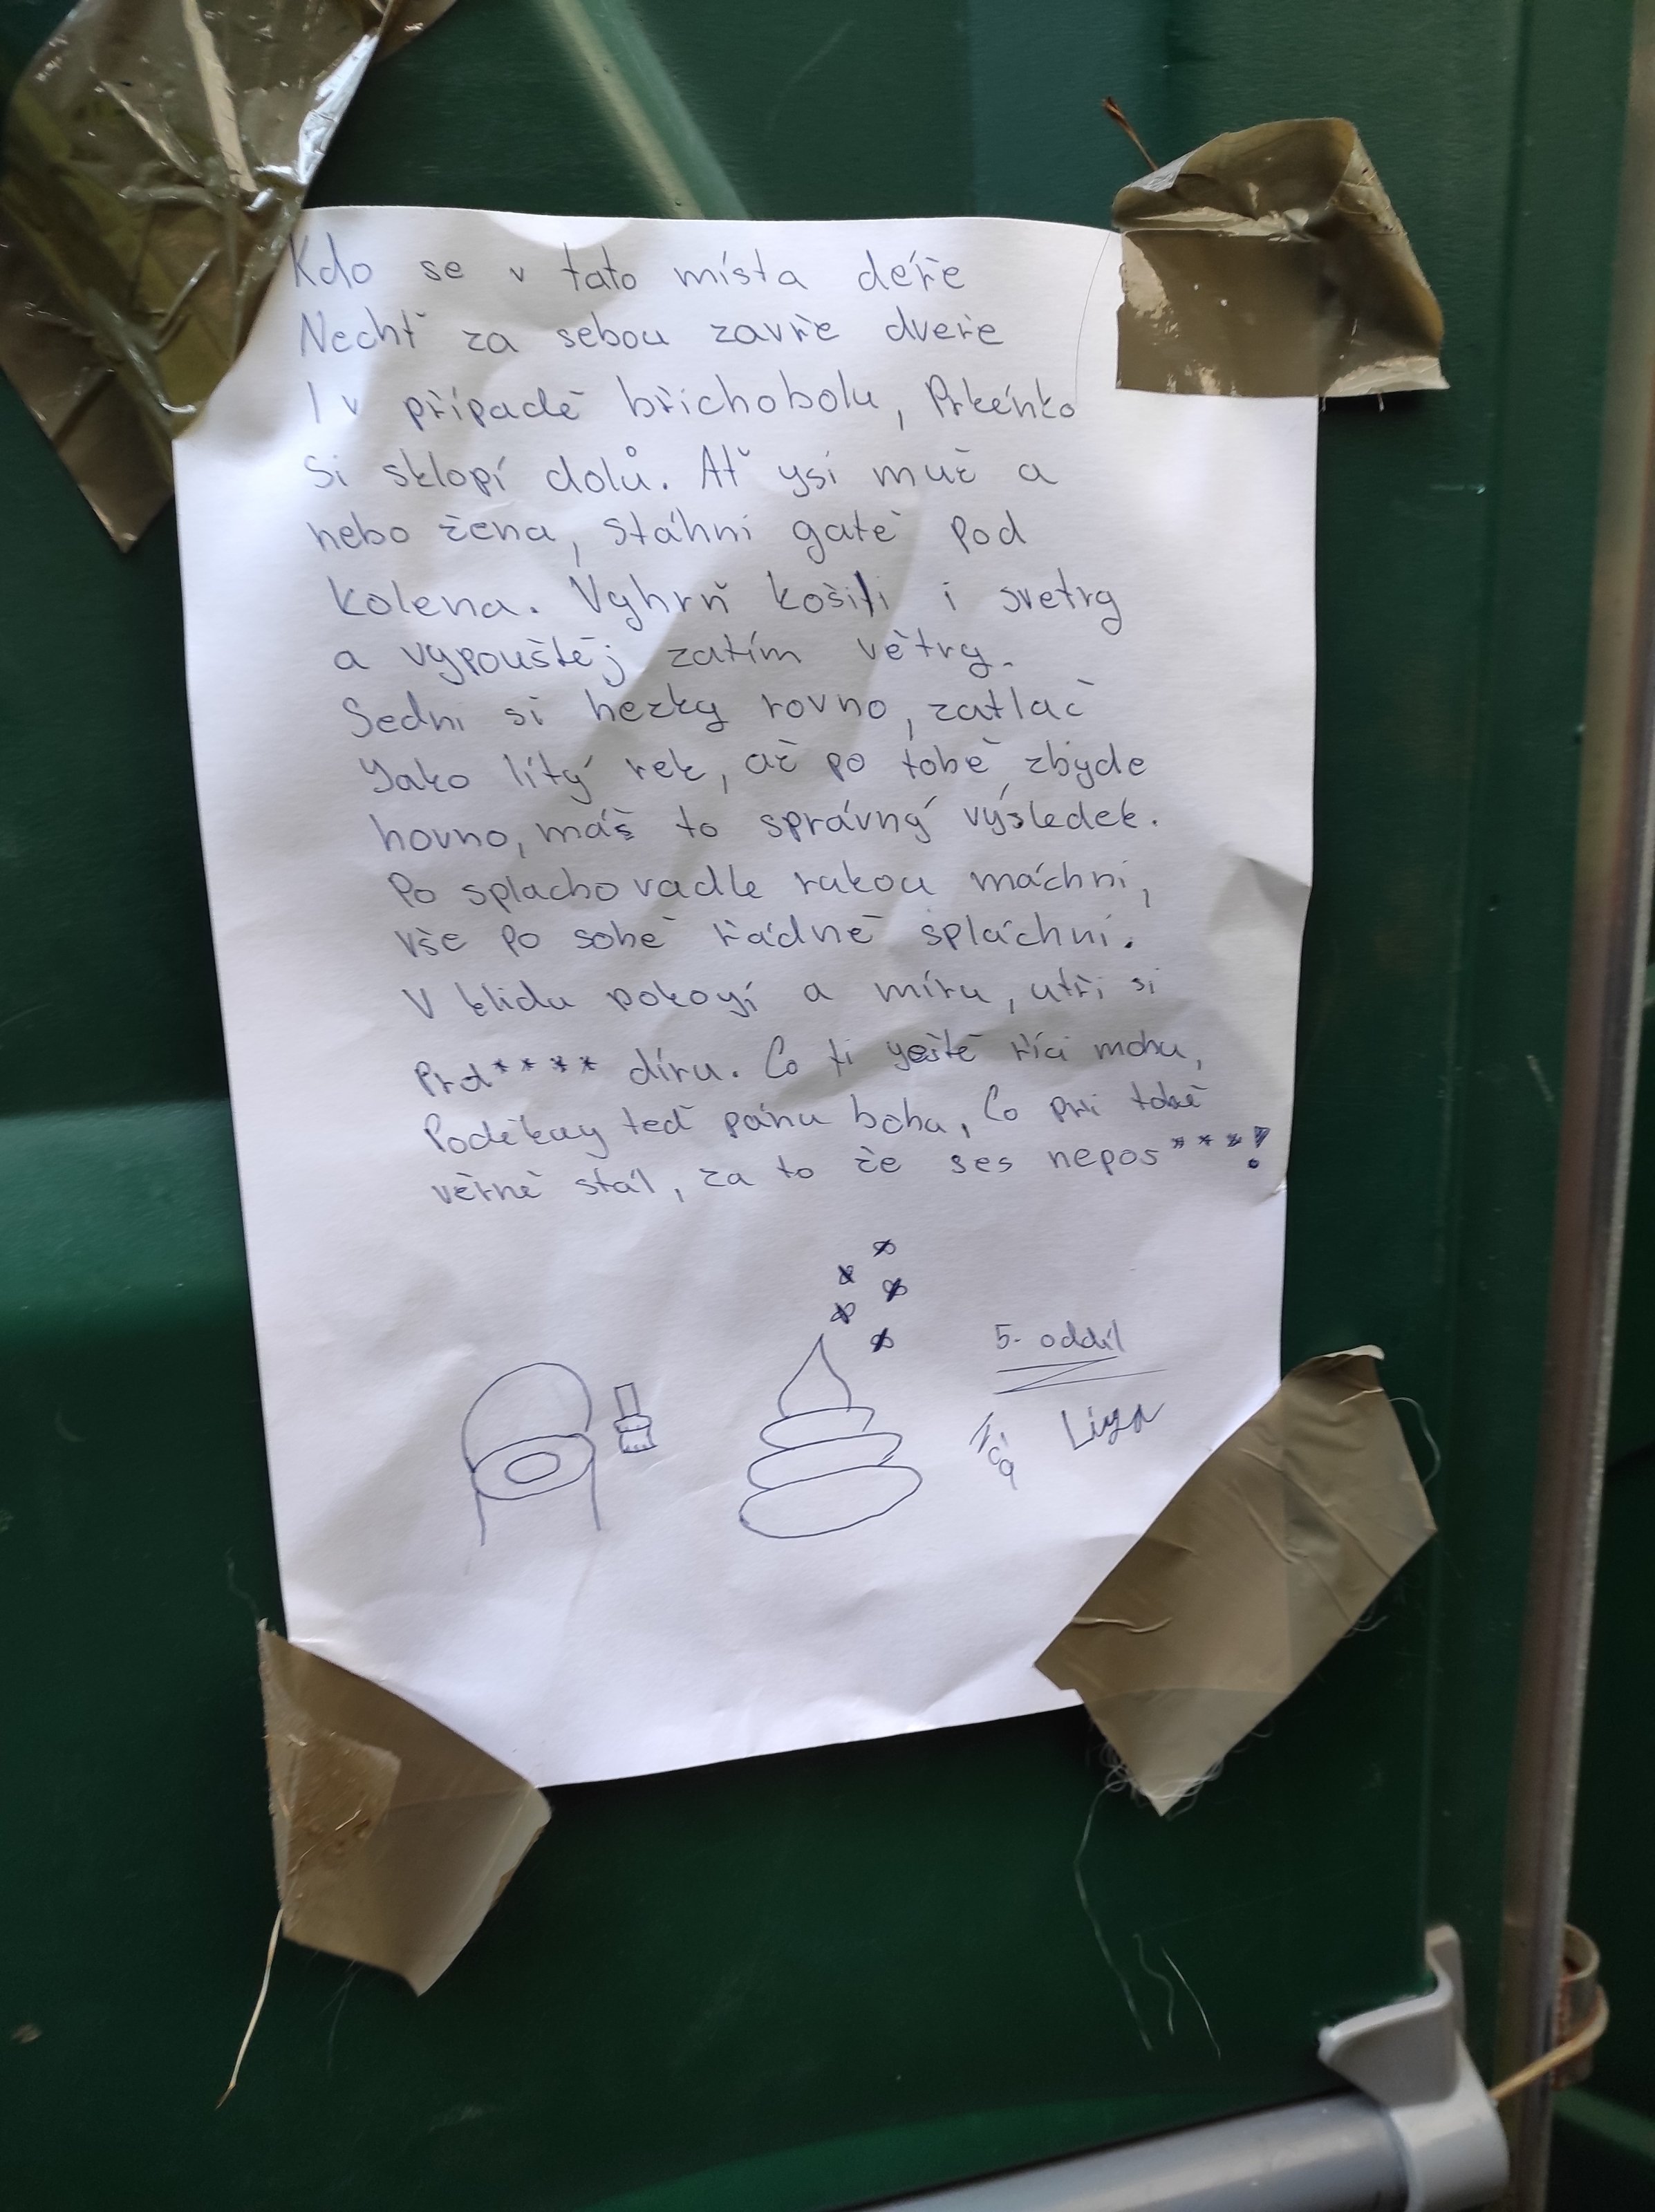 Kdo se v tato místa déře
Nechť za sebou zavře dveře
I v případě břichobolu, Prkénko
si sklopí dolů. Ať ysi muž a
nebo žena, stáhni gatě pod
kolena. Vyhrň košili i svetry
a vypouštěj zatím větry.
Sedni si hezky rovno, zatlač
Yako lítý rek, až po tobě zbyde
hovno, máš to správný výsledek.
Po splachovadle rukou máchni,
vše po sobě řádně spláchni.
V klidu pokoyí a míru, utři si
Prd**** díru. Co ti yeště říci mohu,
Poděkuy teď pánu bohu, Co při tobě
věrně stál, za to že ses nepos***!
5. oddíl
Líza